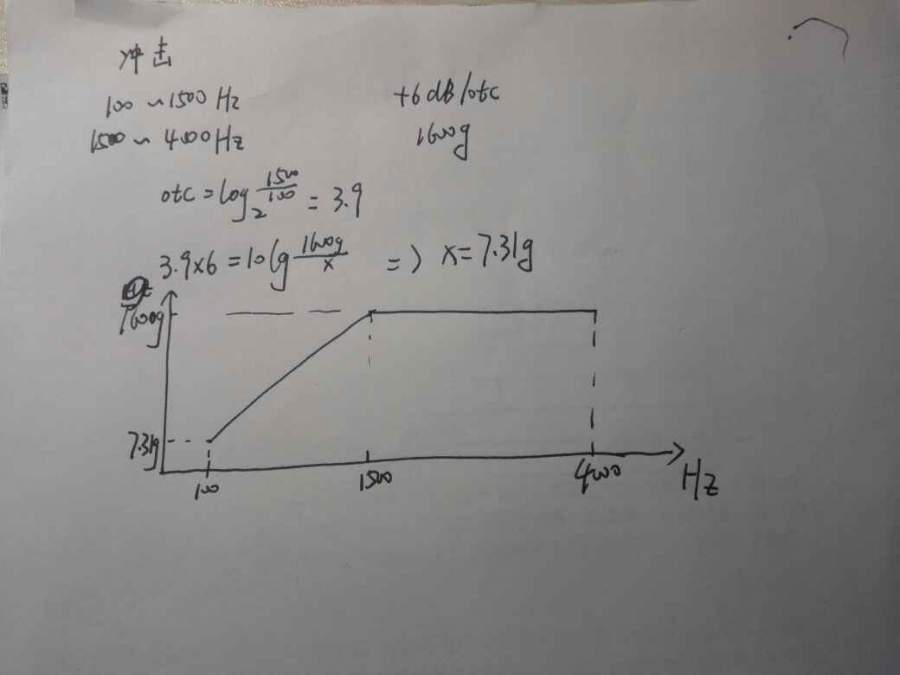 冲击
100 ~ 1500 Hz +6 dB/otc
1500 ~ 4000 Hz 1600g
otc = log₂ 1500/100 = 3.9
3.9×6 = 10 lg 1600g/x => x = 7.31g
1600g
7.31g
100 1500 4000 Hz